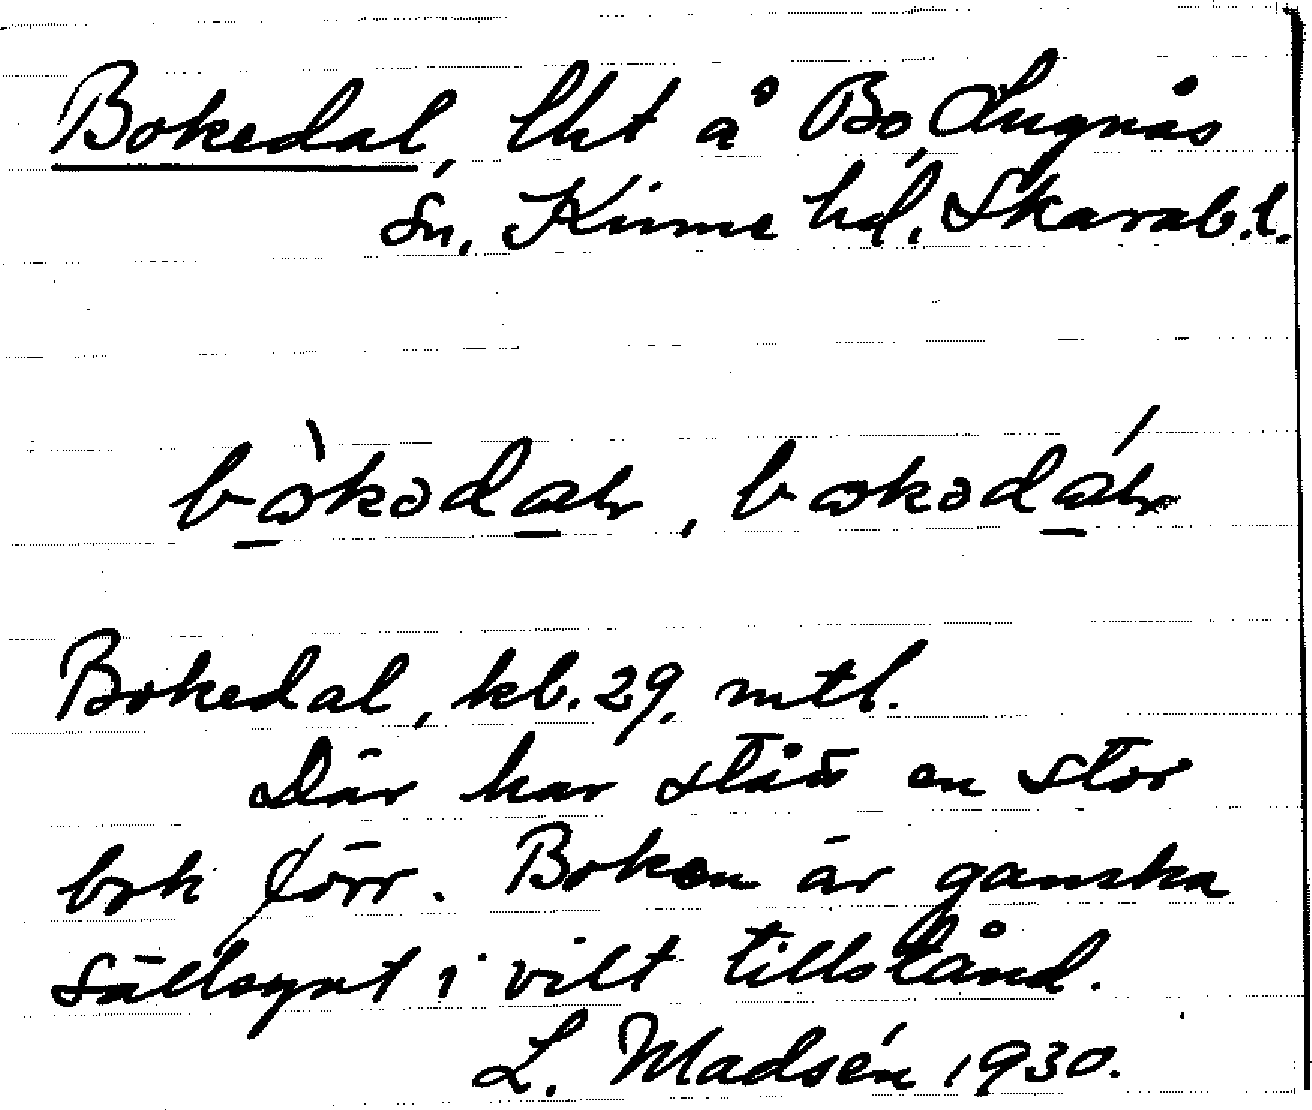 Bokedal, lht å Bo, Lugnås
sn. Kinne hd. Skarab.l.
Bokedal, kb. 29, mtl.
Där har stått en stor
bok förr. Boken är ganska
sällsynt i vilt tillstånd.
L. Madsén 1930.